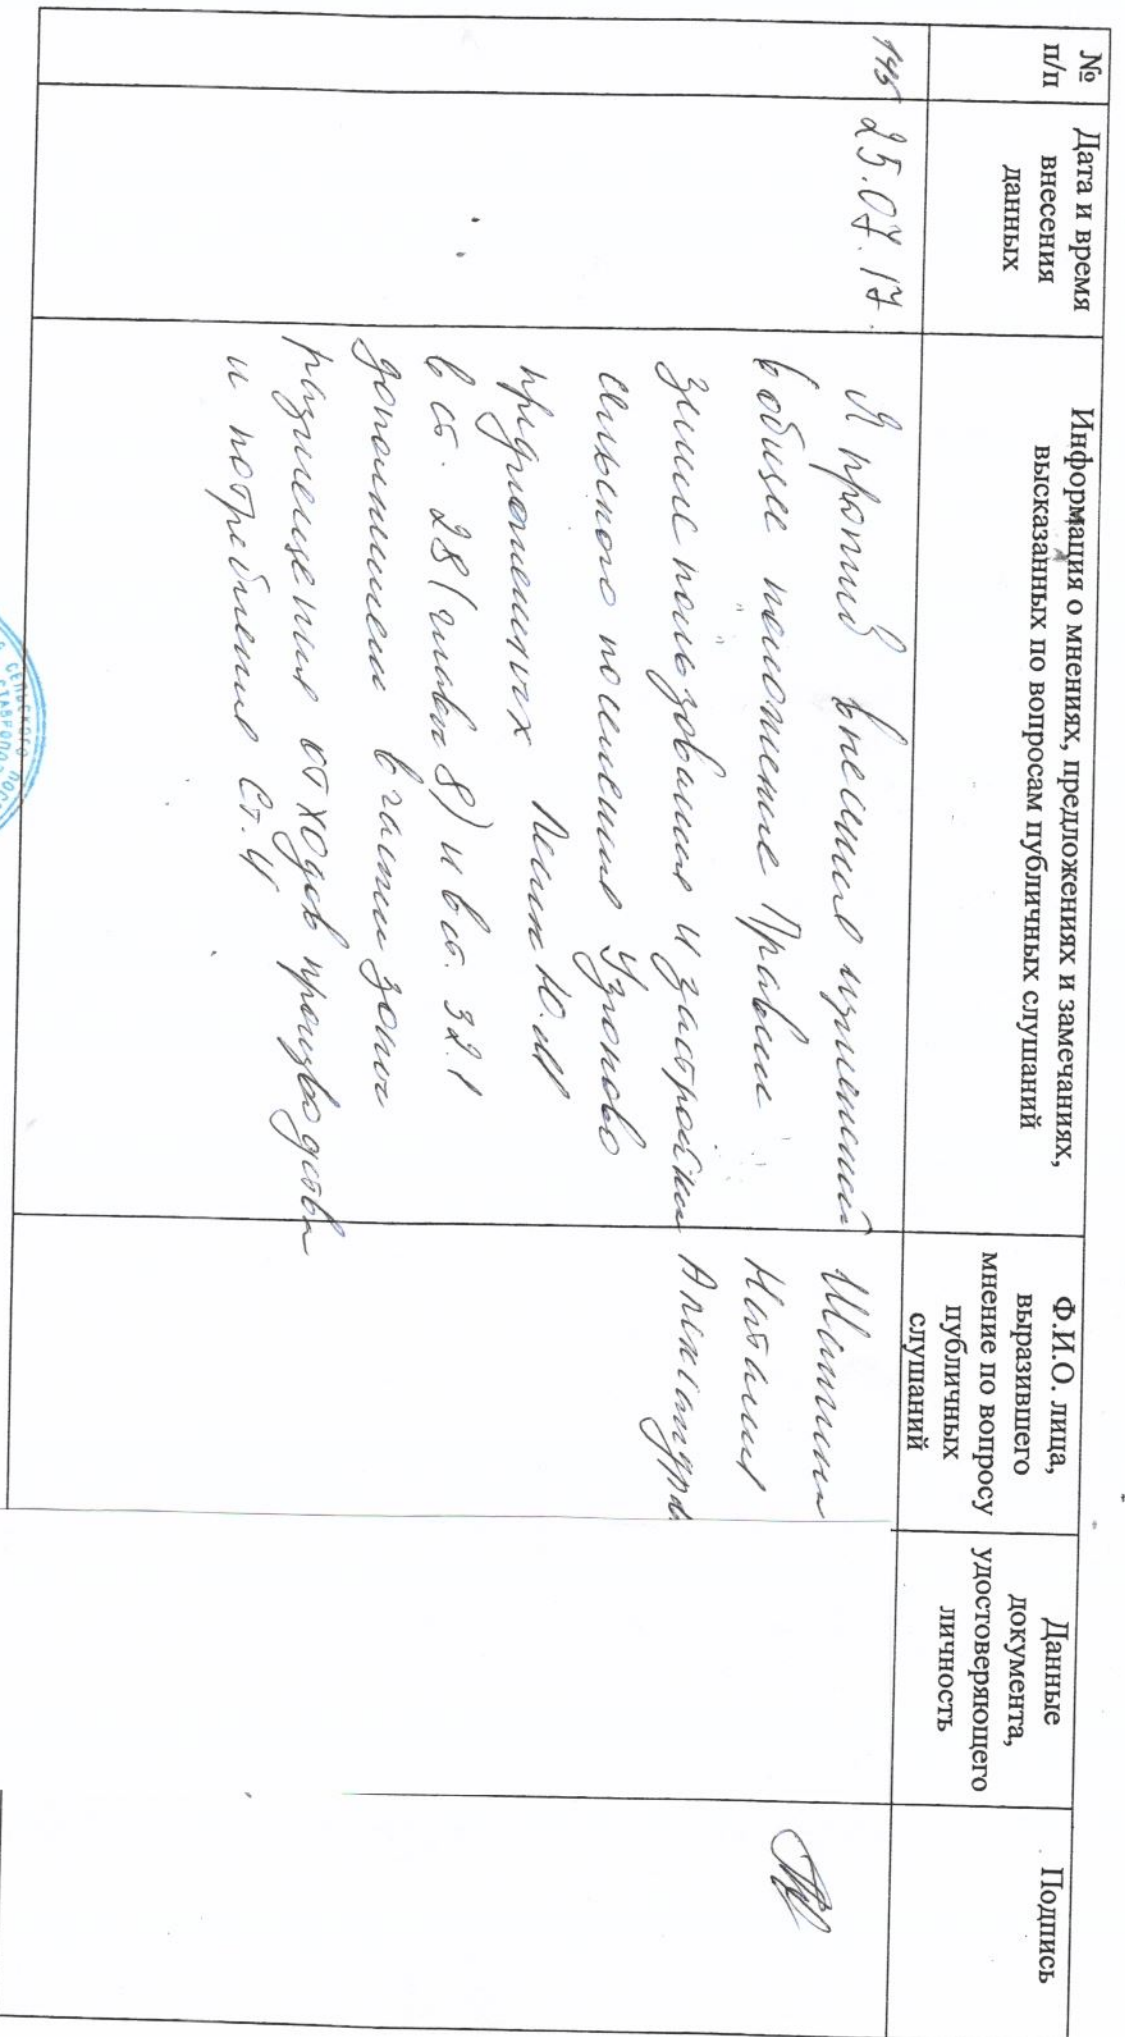 №
п/п
Дата и время
внесения
данных
Информация о мнениях, предложениях и замечаниях,
высказанных по вопросам публичных слушаний
Ф.И.О. лица,
выразившего
мнение по вопросу
публичных
слушаний
Данные
документа,
удостоверяющего
личность
Подпись
145
25.07.17.
Я против внесения изменений
в общее положение Правил
землепользования и застройки
сельского поселения Узюково
предложенных Ю.М
в ст. 28 (глава 8) и в ст. 32.1
дополнении в части зоны
размещения отходов производства
и потребления Ст. 4
Наталия
Александра
СЕЛЬСКОГО ПОС
СТАВРОПО